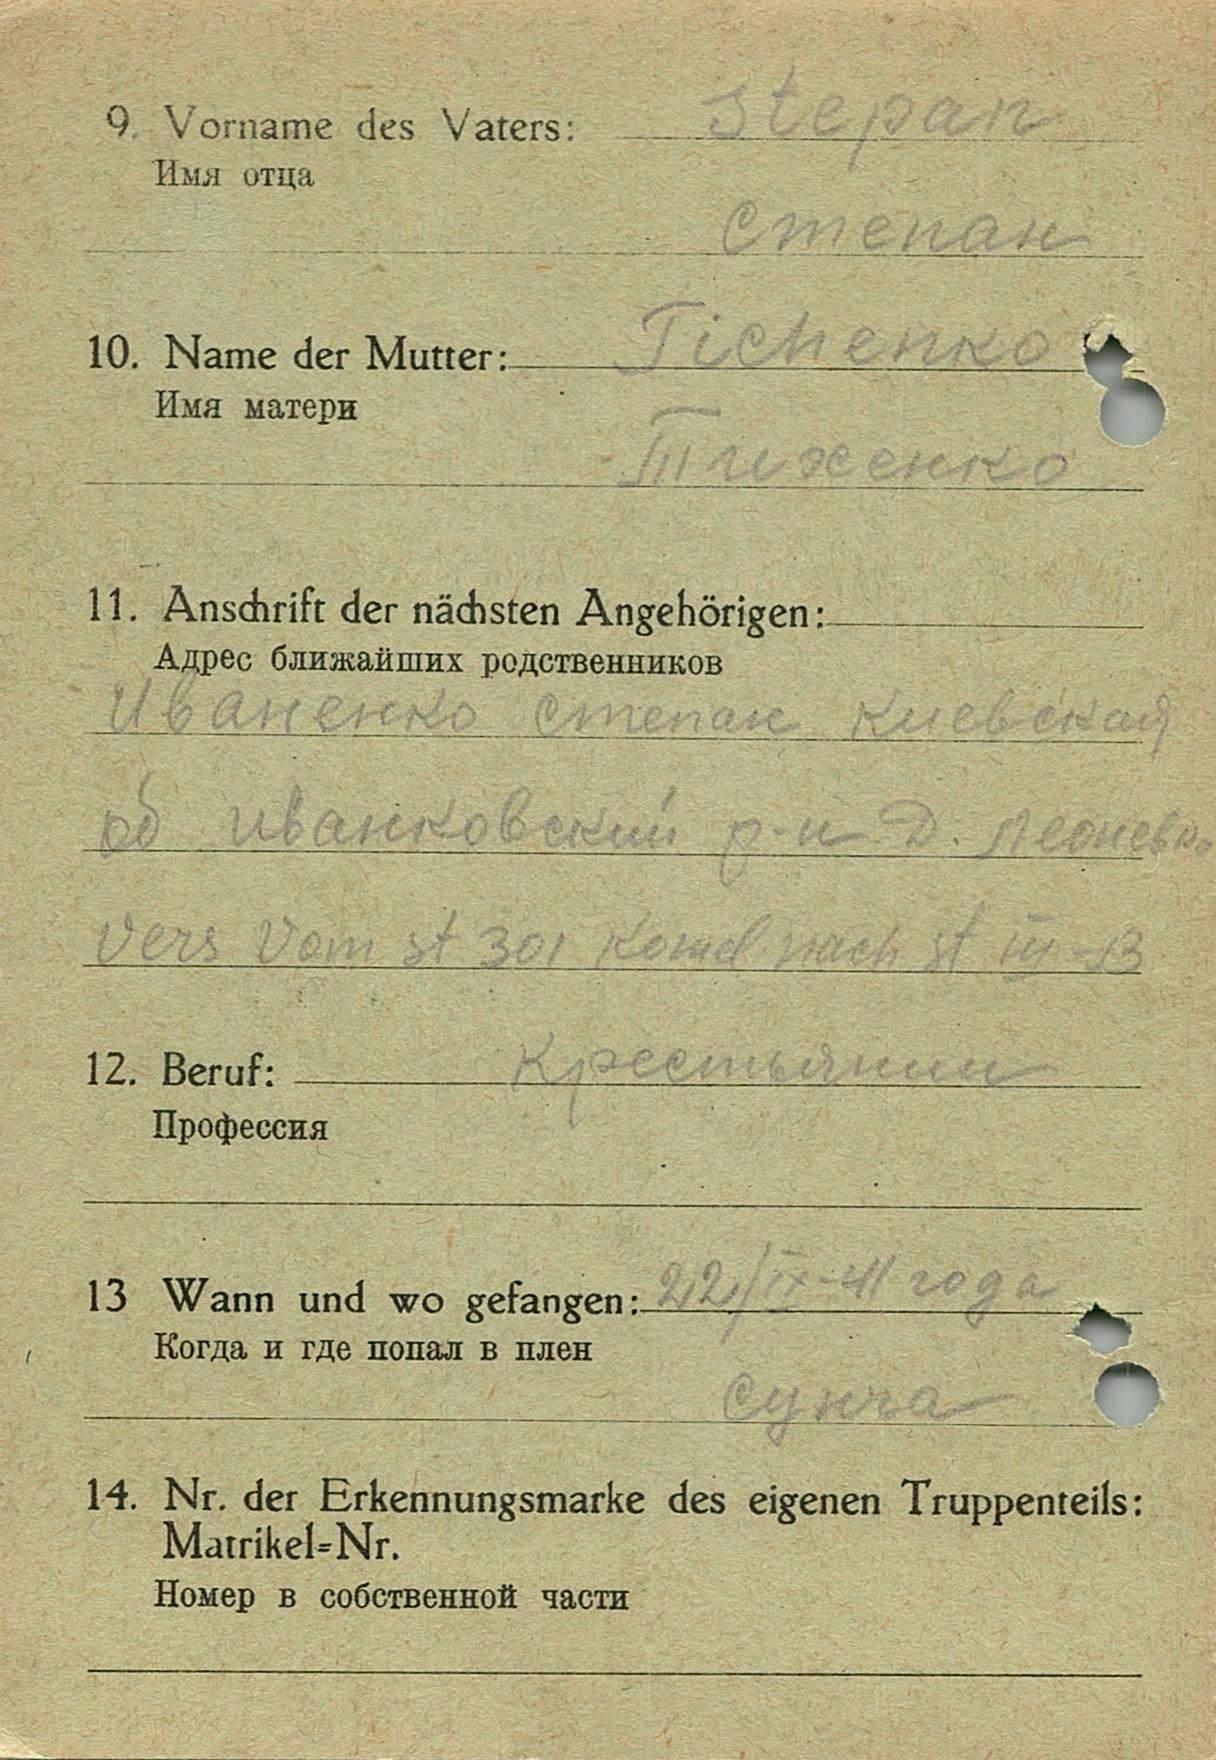 9. Vorname des Vaters: Stepan
Имя отца
Степан
10. Name der Mutter: Tichenko
Имя матери
Тиженко
11. Anschrift der nächsten Angehörigen:
Адрес ближайших родственников
Иваненко Степан Киевская
об Иванковский р-н Д. Леоневка
Vers Vom St 301 Komd nach St III-B
12. Beruf: Крестьянин
Профессия
13 Wann und wo gefangen: 22/IX-41 года
Когда и где попал в плен
Сунча
14. Nr. der Erkennungsmarke des eigenen Truppenteils:
Matrikel=Nr.
Номер в собственной части